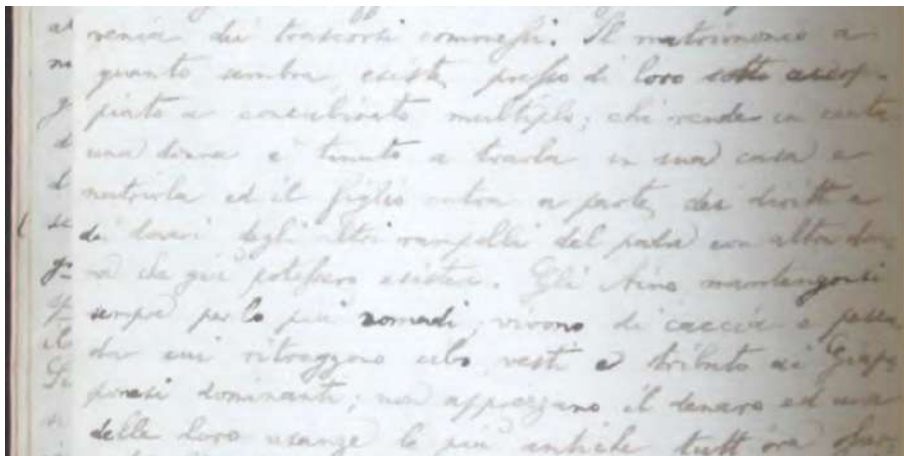 venia dei trascorsi commessi. Il matrimonio a
quanto sembra, esiste, presso di loro sotto
piato a concubinato multiplo; chi rende in cinta
una donna è tenuto a trarla in sua casa e
nutrirla ed il figlio entra a parte, dei diritti e
dei doveri degli altri rampolli del padre con altra don,
na che già potessero esistere. Gli Aino mantengonsi
sempre per lo più nomadi, vivono di caccia e pesca
da cui ritraggono cibo, vesti e tributo ai Giap,
ponesi dominanti; non apprezzano il denaro ed una
delle loro usanze le più antiche tutt'ora